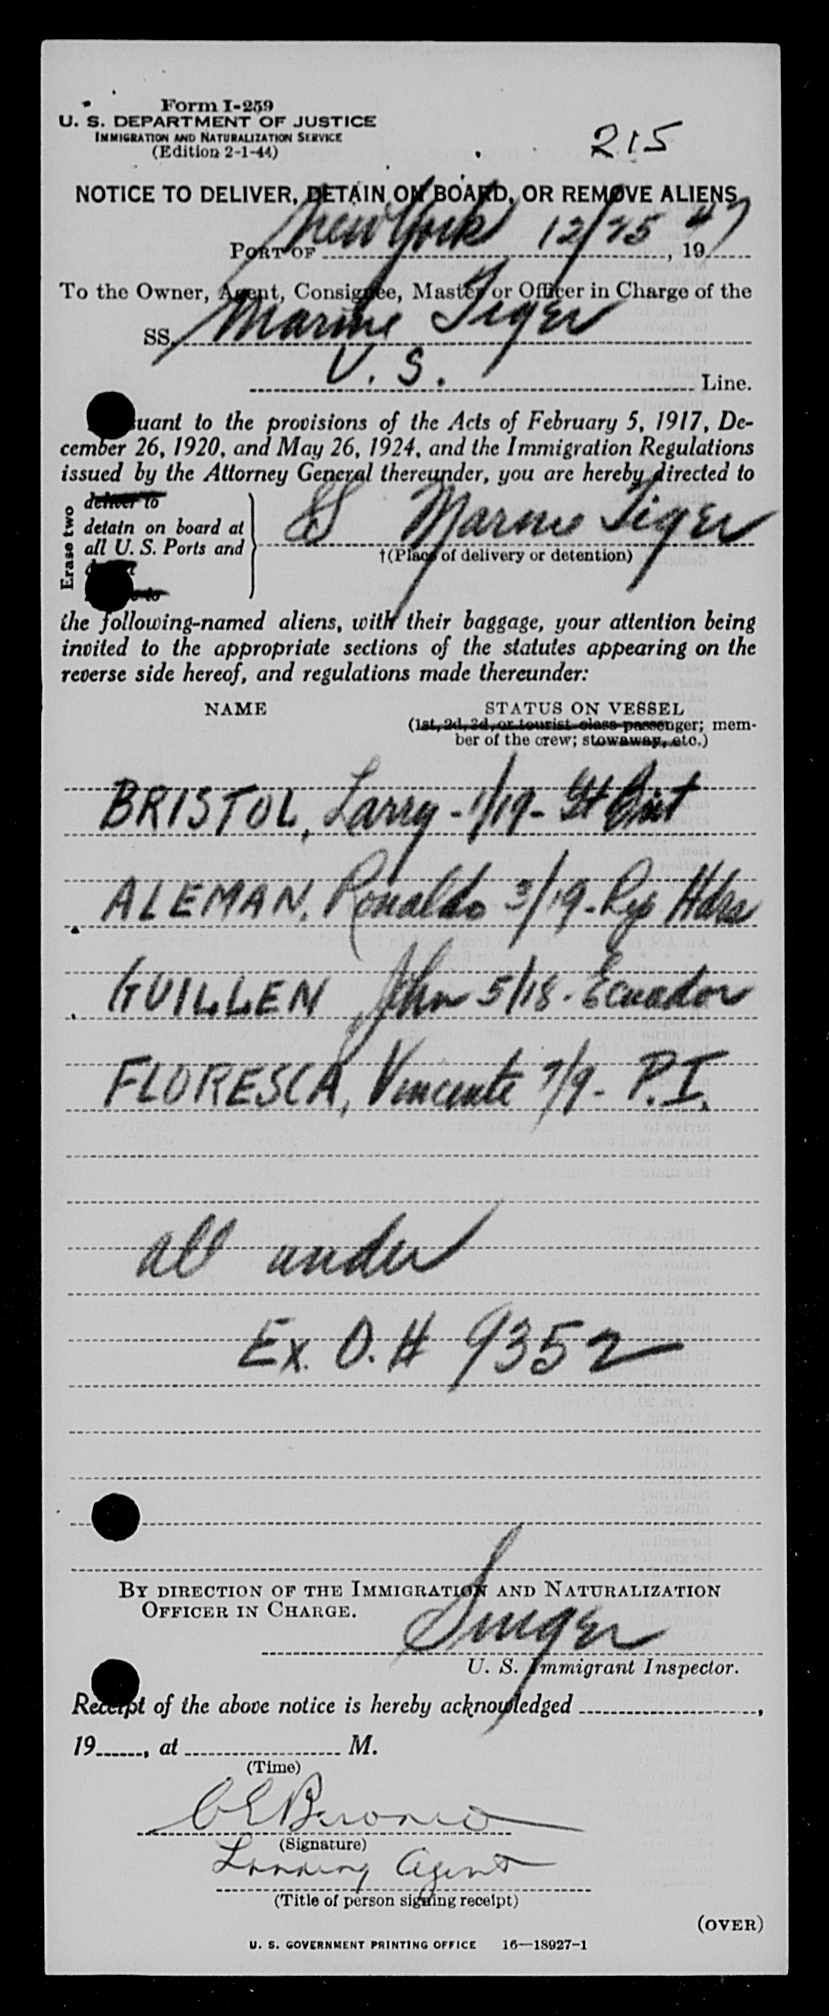 Form I-259
U. S. DEPARTMENT OF JUSTICE
IMMIGRATION AND NATURALIZATION SERVICE
(Edition 2-1-44)
215
NOTICE TO DELIVER, DETAIN ON BOARD, OR REMOVE ALIENS
PORT OF New York 12/25, 1947
To the Owner, Agent, Consignee, Master or Officer in Charge of the
SS. Marine Tiger
U. S. Line.
suant to the provisions of the Acts of February 5, 1917, De-
cember 26, 1920, and May 26, 1924, and the Immigration Regulations
issued by the Attorney General thereunder, you are hereby directed to
Erase two
deliver to
detain on board at
all U. S. Ports and
SS Marine Tiger
†(Place of delivery or detention)
the following-named aliens, with their baggage, your attention being
invited to the appropriate sections of the statutes appearing on the
reverse side hereof, and regulations made thereunder:
NAME STATUS ON VESSEL
(1st, 2d, 3d, or tourist class passenger; mem-
ber of the crew; stowaway, etc.)
BRISTOL, Larry - 1/19 - Gt Brit
ALEMAN, Ronaldo 3/19 - Hdra
GUILLEN, John 5/18 - Ecuador
FLORESCA, Vincente 7/9 - P.I.
all under
Ex. O. # 9352
BY DIRECTION OF THE IMMIGRATION AND NATURALIZATION
OFFICER IN CHARGE.
Singer
U. S. Immigrant Inspector.
Receipt of the above notice is hereby acknowledged ,
19 , at M.
(Time)
(Signature)
Landing Agent
(Title of person signing receipt)
(OVER)
U. S. GOVERNMENT PRINTING OFFICE 16—18927-1